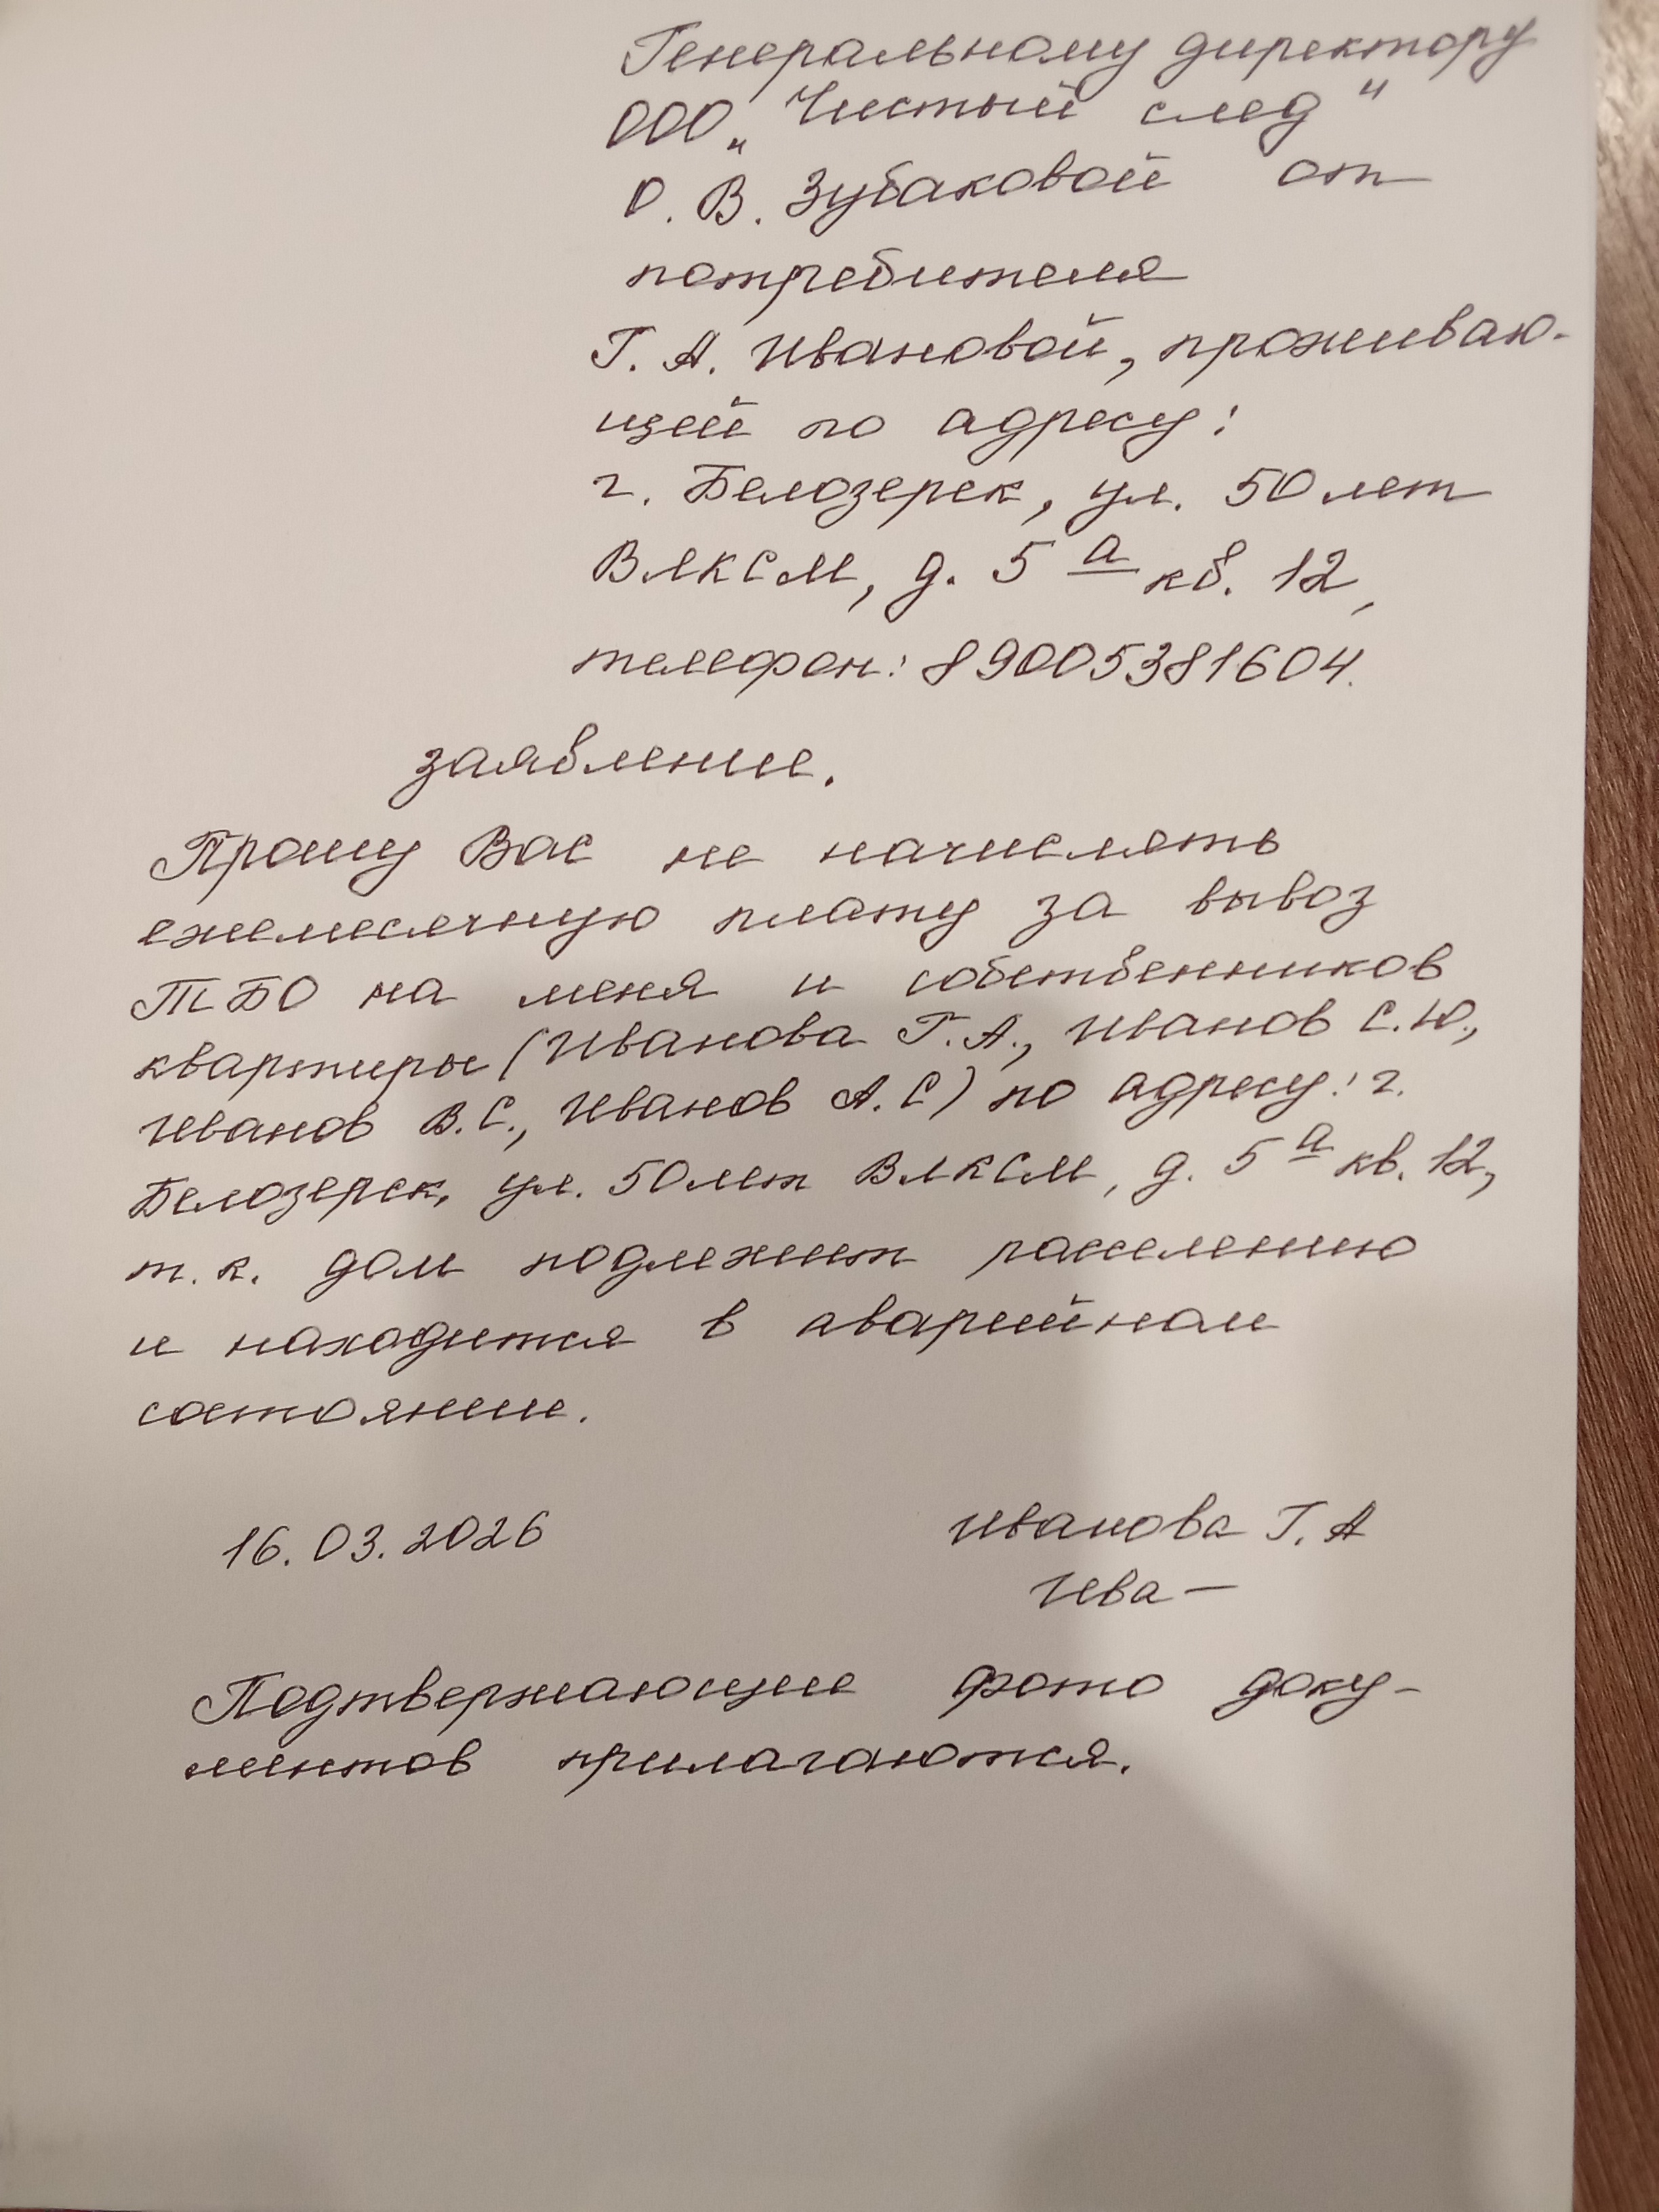 Генеральному директору
ООО „Чистый след"
О. В. Зубаковой от
потребителя
Г. А. Ивановой, проживаю-
щей по адресу:
г. Белозерск, ул. 50 лет
ВЛКСМ, д. 5 а кв. 12,
телефон: 89005381604.
заявление.
Прошу Вас не начислять
ежемесячную плату за вывоз
ТБО на меня и собственников
квартиры (Иванова Г. А., Иванов С. Ю.,
Иванов В. С., Иванов А. С) по адресу: г.
Белозерск, ул. 50 лет ВЛКСМ, д. 5 а кв. 12,
т. к. дом подлежит расселению
и находится в аварийном
состоянии.
16.03.2026 Иванова Г. А
Ива—
Подтвержающие фото доку-
ментов прилагаются.